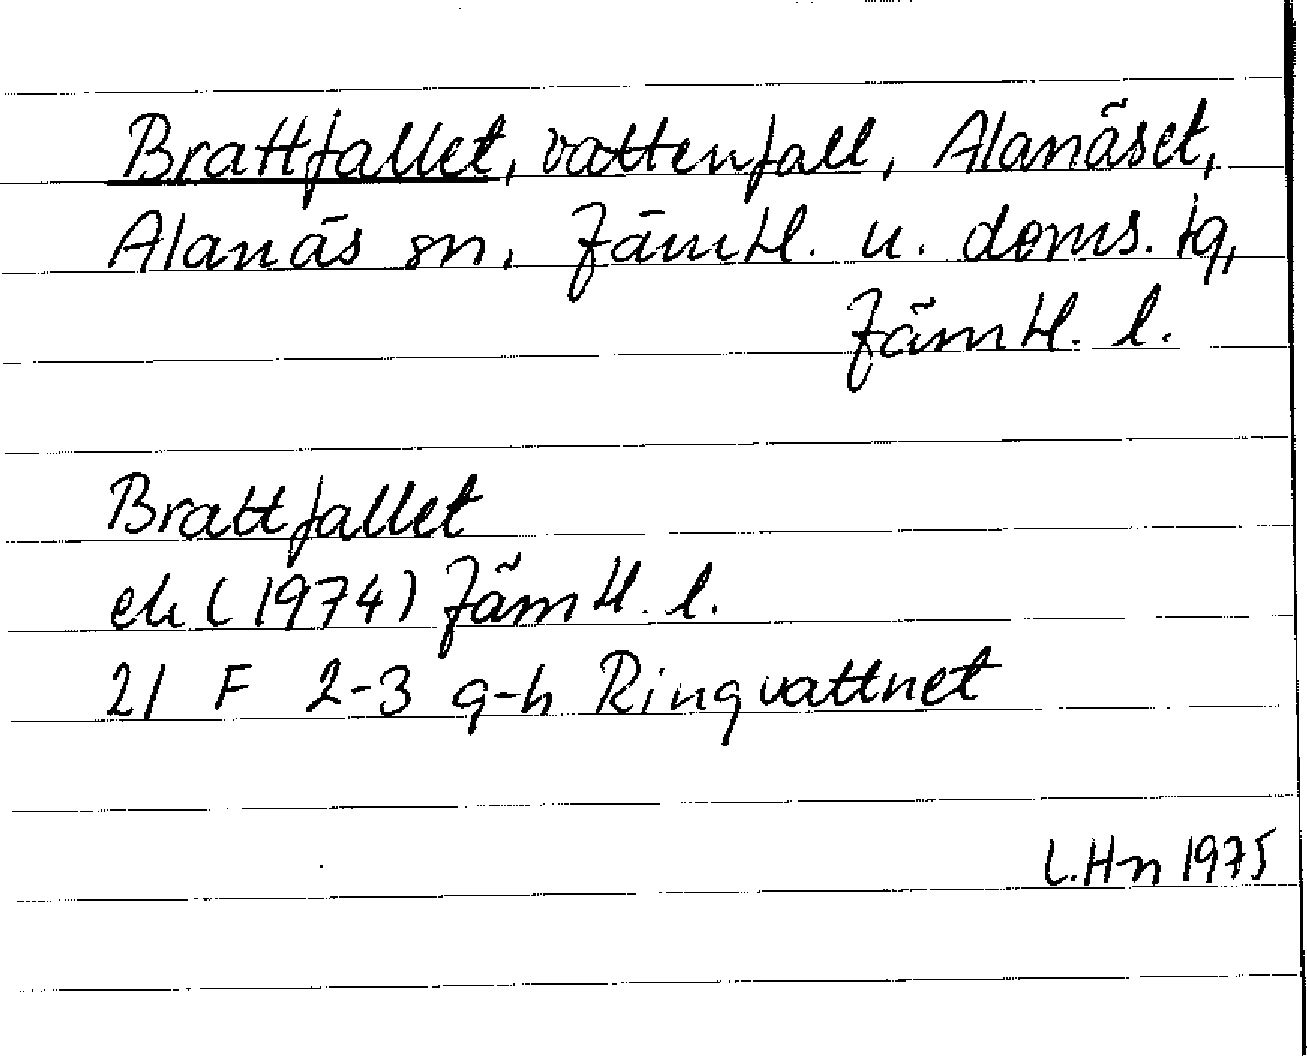 Brattfallet, vattenfall, Alanäset,
Alanäs sn, Jämtl. u. doms. tg,
Jämtl. l.
Brattfallet
ek (1974) Jämtl. l.
21 F 2-3 g-h Ringvattnet
L.Hn 1975